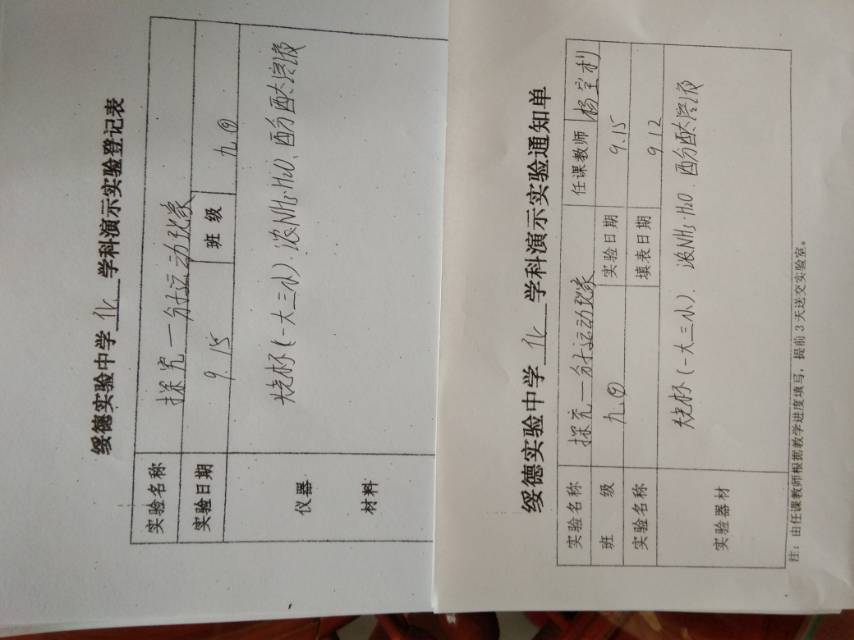 绥德实验中学 化 学科演示实验登记表
实验名称 探究一分子运动现象
实验日期 9.15 班 级 九.④
仪器 烧杯(一大三小)、浓NH3·H2O、酚酞溶液
材料
绥德实验中学 化 学科演示实验通知单
实验名称 探究一分子运动现象 任课教师 杨宝利
班 级 九.④ 实验日期 9.15
实验名称 填表日期 9.12
实验器材 烧杯(一大三小)、浓NH3·H2O 酚酞溶液
注：由任课教师根据教学进度填写，提前3天送交实验室。